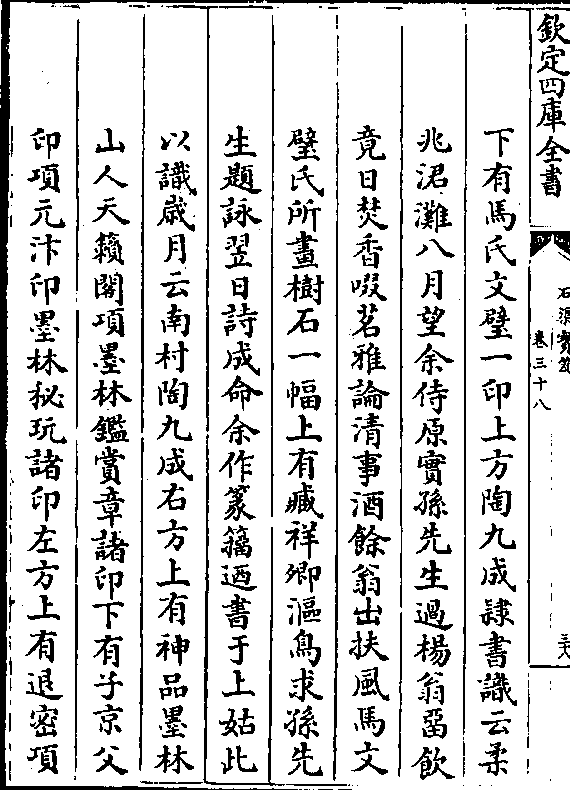 欽定四庫全書
石渠寳笈
卷三十八
三六
下有馬氏文璧一印上方陶九成隷書識云柔
兆涒灘八月望余侍原實孫先生過楊翁㽞飲
竟日焚香啜茗雅論清事酒餘翁出扶風馬文
璧氏所畫樹石一幅上有臧祥卿漚鳥求孫先
生題詠翌日詩成命余作篆籀迺書于上姑此
以識歳月云南村陶九成右方上有神品墨林
山人天籟閣項墨林鑑賞章諸印下有子京父
印項元汴印墨林秘玩諸印左方上有退密項